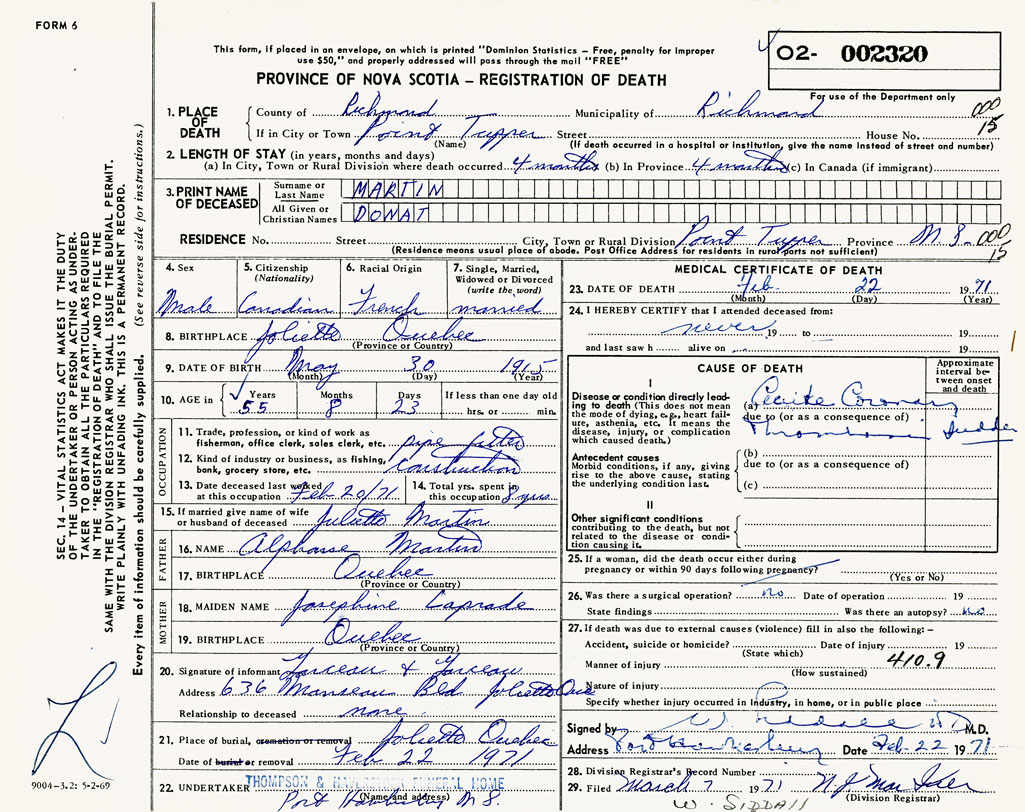 FORM 6
This form, if placed in an envelope, on which is printed "Dominion Statistics – Free, penalty for improper
use $50," and properly addressed will pass through the mail "FREE"
O2- 002320
For use of the Department only
PROVINCE OF NOVA SCOTIA – REGISTRATION OF DEATH
1. PLACE OF DEATH
County of Richmond Municipality of Richmond 000
If in City or Town Point Tupper Street House No. 15
(Name) (If death occurred in a hospital or institution, give the name instead of street and number)
2. LENGTH OF STAY (in years, months and days)
(a) In City, Town or Rural Division where death occurred 4 months (b) In Province 4 months (c) In Canada (if immigrant)
3. PRINT NAME OF DECEASED
Surname or Last Name MARTIN
All Given or Christian Names DONAT
RESIDENCE No. Street City, Town or Rural Division Point Tupper Province N S. 000
15
(Residence means usual place of abode. Post Office Address for residents in rural parts not sufficient)
4. Sex
Male
5. Citizenship (Nationality)
Canadian
6. Racial Origin
French
7. Single, Married, Widowed or Divorced (write the word)
married
8. BIRTHPLACE Joliette Quebec
(Province or Country)
9. DATE OF BIRTH May 30 1915
(Month) (Day) (Year)
10. AGE in Years Months Days If less than one day old
55 8 23 hrs. or min.
OCCUPATION
11. Trade, profession, or kind of work as
fisherman, office clerk, sales clerk, etc. pipe fitter
12. Kind of industry or business, as fishing,
bank, grocery store, etc. Construction
13. Date deceased last worked
at this occupation Feb 20/71
14. Total yrs. spent in
this occupation 8 yrs.
15. If married give name of wife
or husband of deceased Juliette Martin
FATHER
16. NAME Alphonse Martin
17. BIRTHPLACE Quebec
(Province or Country)
MOTHER
18. MAIDEN NAME Josephine Laprade
19. BIRTHPLACE Quebec
(Province or Country)
20. Signature of informant
Address 636 Manseau Bld Joliette Que
Relationship to deceased none
21. Place of burial, cremation or removal Joliette Quebec
Date of burial or removal Feb 22 1971
22. UNDERTAKER THOMPSON & FUNERAL HOME
(Name and address)
Port N S.
MEDICAL CERTIFICATE OF DEATH
23. DATE OF DEATH Feb. 22 1971
(Month) (Day) (Year)
24. I HEREBY CERTIFY that I attended deceased from:
never 19 to 19
and last saw h alive on 19
CAUSE OF DEATH
Approximate interval between onset and death
I
Disease or condition directly leading to death (This does not mean the mode of dying, e.g., heart failure, asthenia, etc. It means the disease, injury, or complication which caused death.)
(a) Acute Coronary
due to (or as a consequence of)
Thrombosis Sudden
Antecedent causes
Morbid conditions, if any, giving rise to the above cause, stating the underlying condition last.
(b)
due to (or as a consequence of)
(c)
II
Other significant conditions
contributing to the death, but not related to the disease or condition causing it.
25. If a woman, did the death occur either during
pregnancy or within 90 days following pregnancy?
(Yes or No)
26. Was there a surgical operation? no Date of operation 19
State findings Was there an autopsy? no
27. If death was due to external causes (violence) fill in also the following: –
Accident, suicide or homicide? Date of injury 19
(State which)
Manner of injury 410.9
(How sustained)
Nature of injury
Specify whether injury occurred in industry, in home, or in public place
Signed by W. Siddall M.D.
Address Port Hawkesbury Date Feb. 22 1971
28. Division Registrar's Record Number
29. Filed March 7 1971
(Division Registrar)
W. SIDDALL
SEC. 14 – VITAL STATISTICS ACT MAKES IT THE DUTY
OF THE UNDERTAKER OR PERSON ACTING AS UNDER-
TAKER TO OBTAIN ALL THE PARTICULARS REQUIRED
IN THE "REGISTRATION OF DEATH" AND TO FILE THE
SAME WITH THE DIVISION REGISTRAR WHO SHALL ISSUE THE BURIAL PERMIT.
WRITE PLAINLY WITH UNFADING INK. THIS IS A PERMANENT RECORD.
Every item of information should be carefully supplied. (See reverse side for instructions.)
9004-3.2: 5-2-69